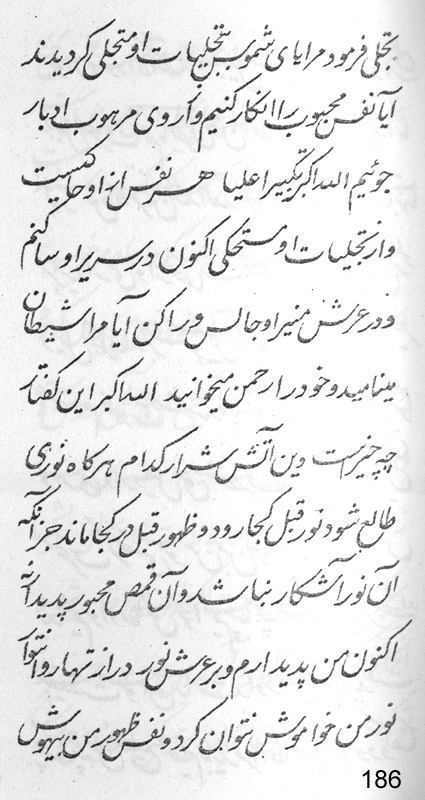 تجلی فرمود مرایای شموس بتجلیات او متجلی کردیدند
آیا نفس محبوب را انکار کنیم و از روی مرهوب ادبار
جوئیم الله اکبر تکبیرا علیا هر نفس از او حاکیست
و از تجلیات او مستحکی اکنون در سریر او ساکنم
و در عرش منیر او جالس و راکن آیا مرا شیطان
مینامید و خود را رحمن میخوانید الله اکبر این کفتار
چه چیز است وین آتش شرار کدام هر کاه نوری
طالع شود نور قبل کجا رود و ظهور قبل در کجا ماند جز آنکه
آن نور آشکار نباشد و آن قمص محبور پدید نه
اکنون من پدیدارم و بر عرش نور در ازتهار و انتوار
نور من خواموش نتوان کرد و نفس ظهور من بیهوش
186